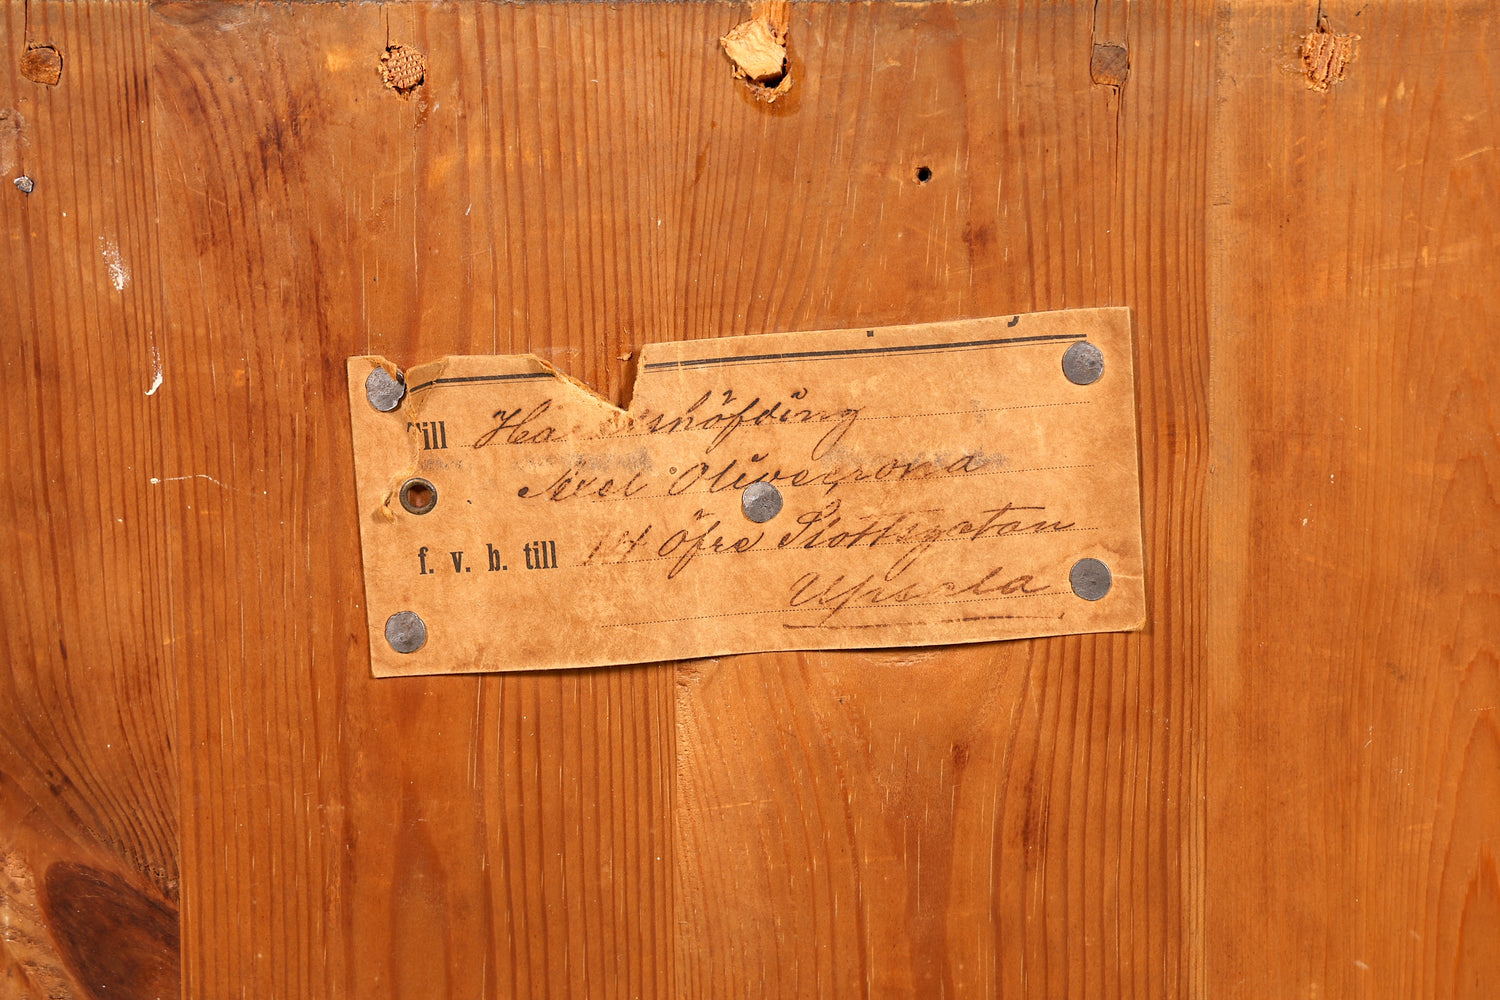 Till Häradshöfding
Axel Olivecrona
f. v. b. till 14 Öfre Slottsgatan
Upsala